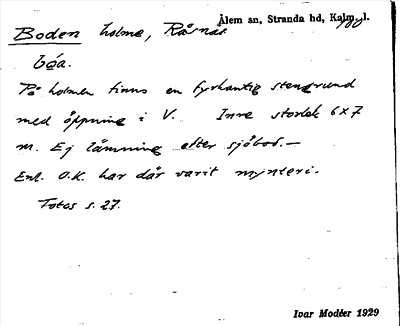 Ålem sn, Stranda hd, Kalm. l.
Boden holme, Rårnäs
bóa.
På holmen finns en fyrkantig stengrund
med öppning i V. Inre storlek 6 x 7
m. Ej lämning efter sjöbod. –
Enl. O.K. har där varit mynteri.
Fotos s. 27.
Ivar Modéer 1929